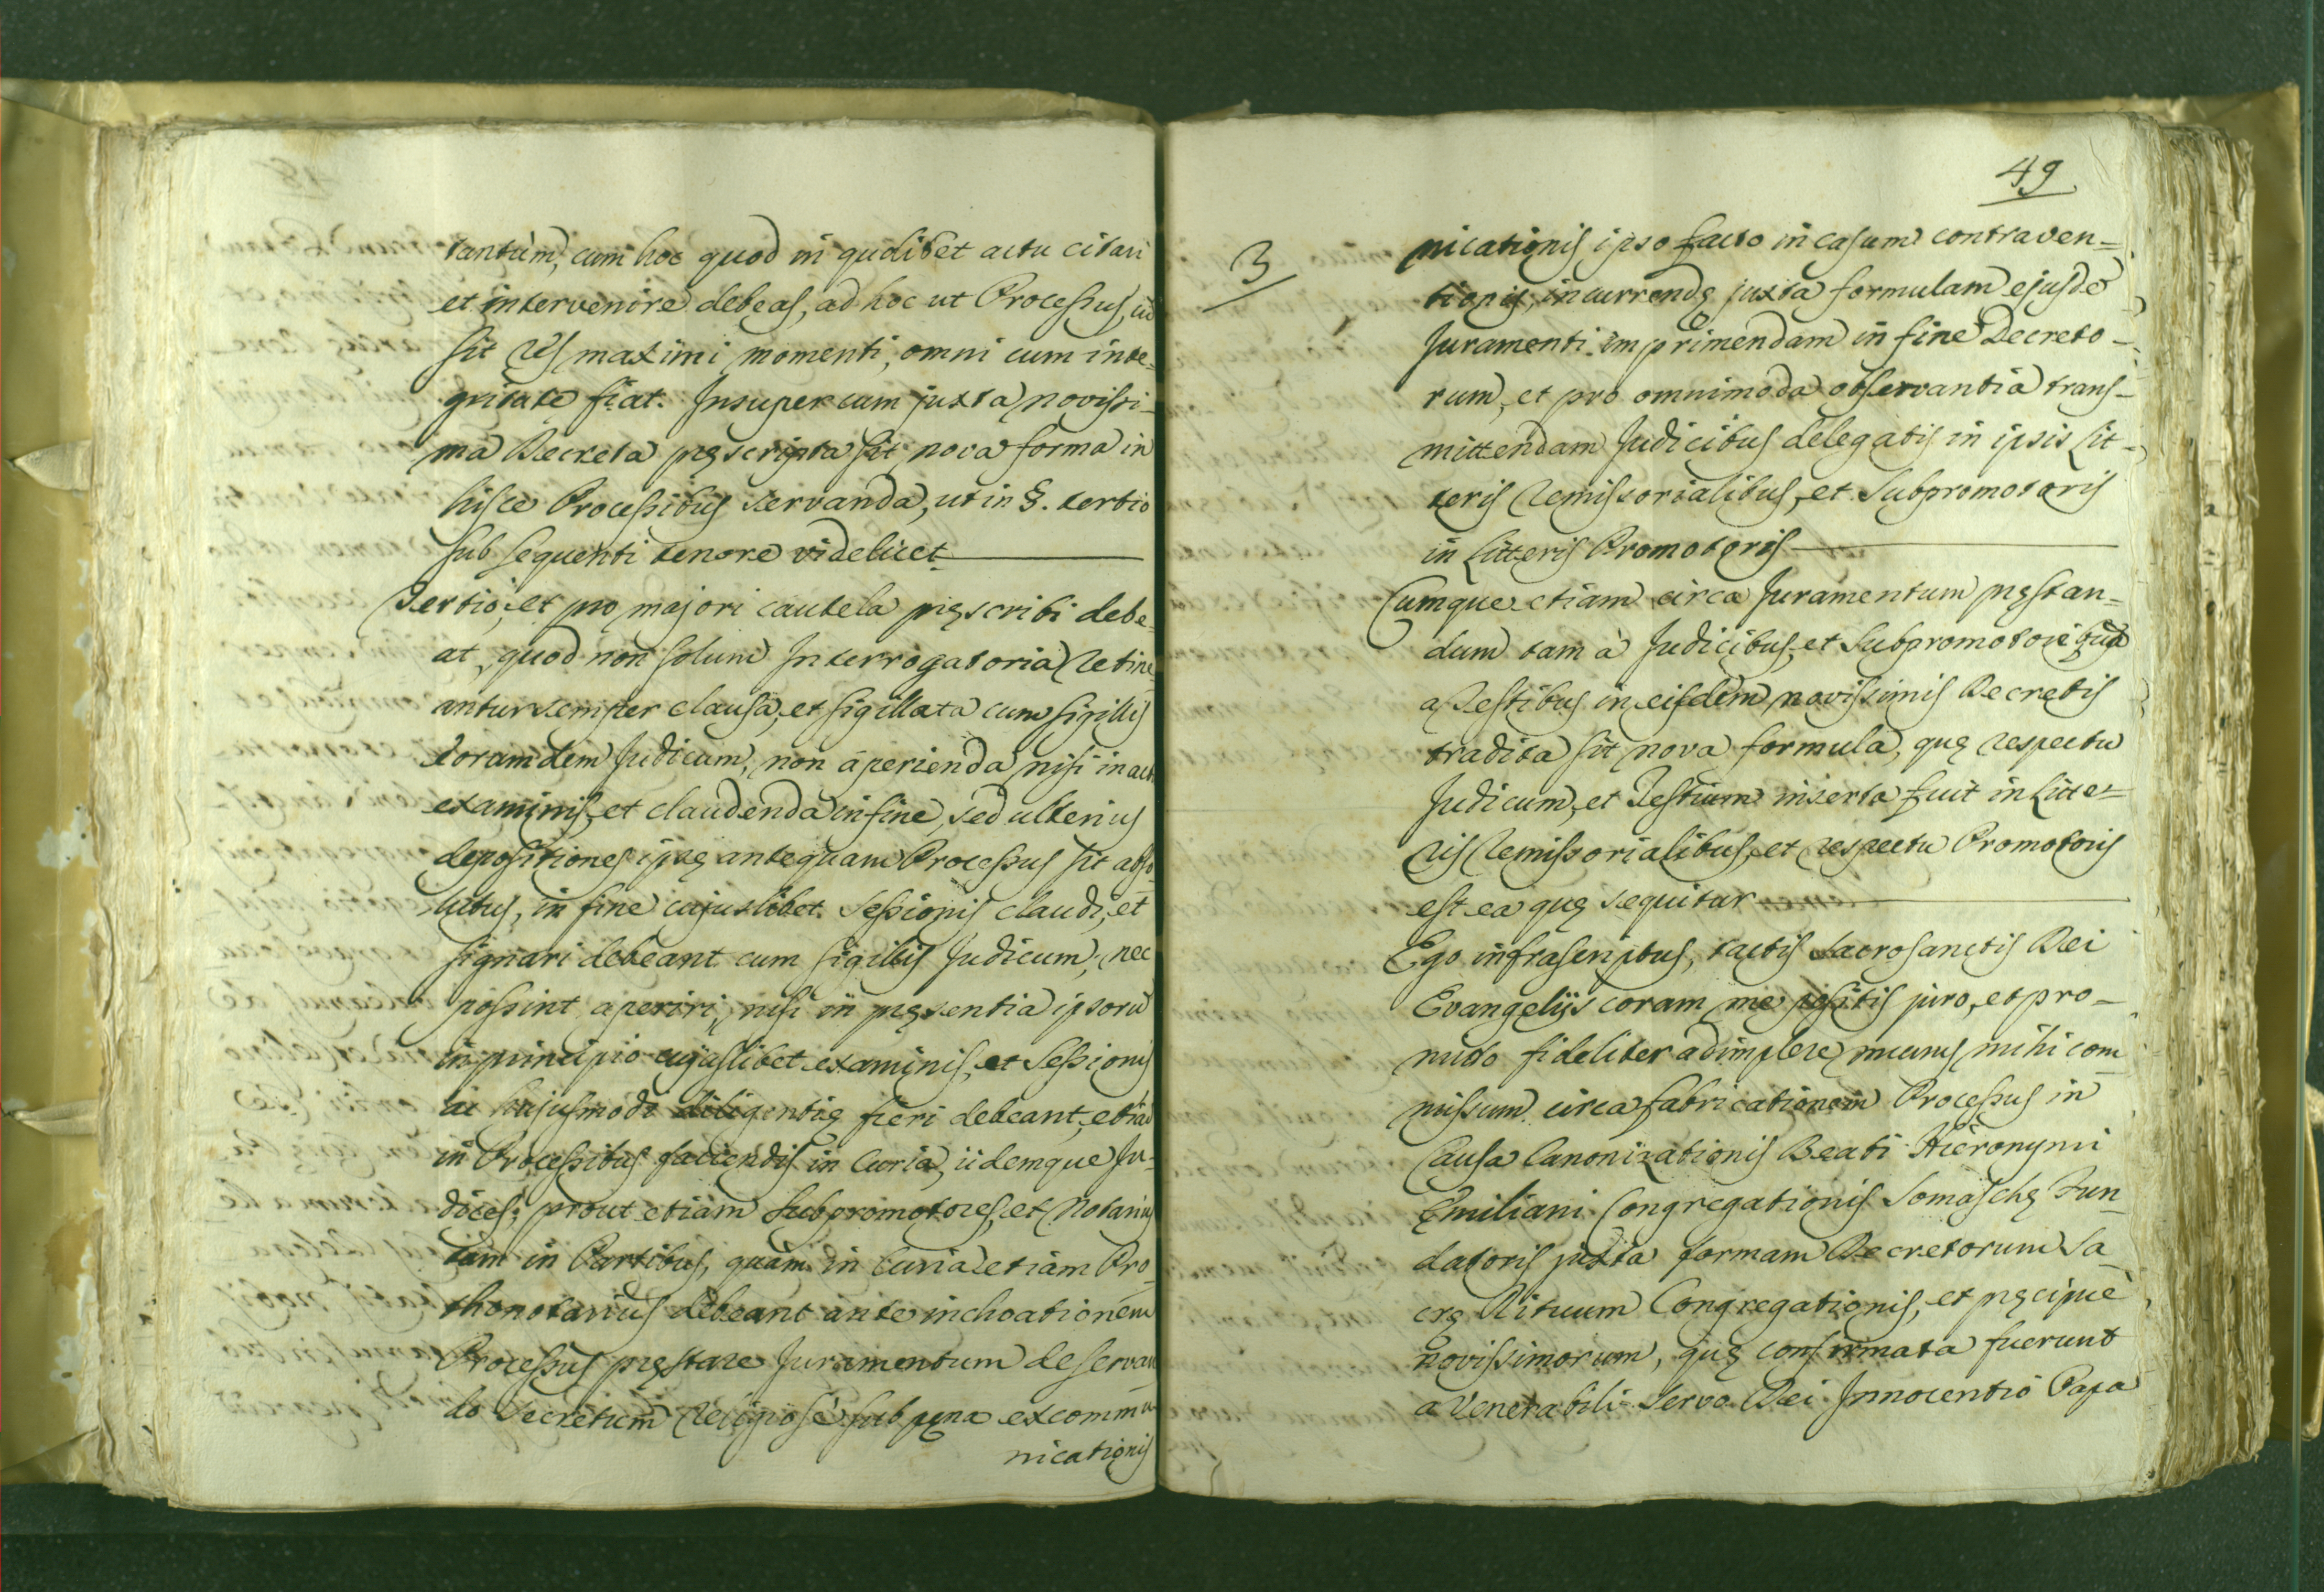 tantùm, cum hoc quod in qudlibet actu citari
et intervenire debeas, ad hoc ut Processus, cũ
sit res maximi momenti, omni cum inte-
gritate fiat. Insuper cum juxta novissi-
ma Decreta pręscripta sit nova forma in
hisce Processibus servanda, ut in §. tertio
sub sequenti tenore videlicet
Tertio, et pro majori cautela pręscribi debe-
at, quod non solum Interrogatoria retine-
antur semper clausa, et sigillata cum sigillis
eorumdem Judicum, non aperienda nisi in act
examinis, et claudenda in fine, sed ulterius
depositiones ipsę antequam Processus sit abso-
lutus, in fine cujuslibet Sessionis claudi, et
signari debeant cum sigillis Judicum, nec
possint aperiri, nisi in pręsentia ipsorũ
in principio cujuslibet examinis, et Sessionis
ac hujusmodi diligentię fieri debeant, etiã
in Processibus faciendis in Curia, iidemque Ju-
dices, prout etiam Subpromotores, et Notarius
tam in Partibus, quàm in Curia etiàm Pro-
thonotarius debeant ante inchoationem
Processus pręstare Juramentum de servan-
do Secretum religiosè sub pęna excommu-
nicationis
49
3
nicationis ipso facto in casum contraven-
tionis, incurrendę juxta formulam ejusdẽ
Juramenti imprimendam in fine Decreto-
rum, et pro omnimoda observantia trans-
mittendam Judicibus delegatis in ipsis Lit-
teris remissorialibus, et Subpromotoris
in Litteris Promotoris
Cumque etiam circa Juramentum pręstan-
dum tam à Judicibus, et Subpromotore quã
a Testibus in eisdem novissimis Decretis
tradita sit nova formula, quę respectu
Judicum, et Testium inserta fuit in Litte-
ris remissorialibus, et respectu Promotoris
est ea quę sequitur
Ego infrascriptus, tactis Sacrosanctis Dei
Evangelijs coram me positis juro, et pro-
mitto fideliter adimplere munus mihi com
missum circa fabricationem Processus in
Causa Canonizationis Beati Hieronymi
Emiliani Congregationis Somaschę Fun-
datoris juxta formam Decretorum Sa
crę Rituum Congregationis, et pręcipuè
novissimorum, quę confirmata fuerunt
a Venerabili Servo Dei Innocentio Papa